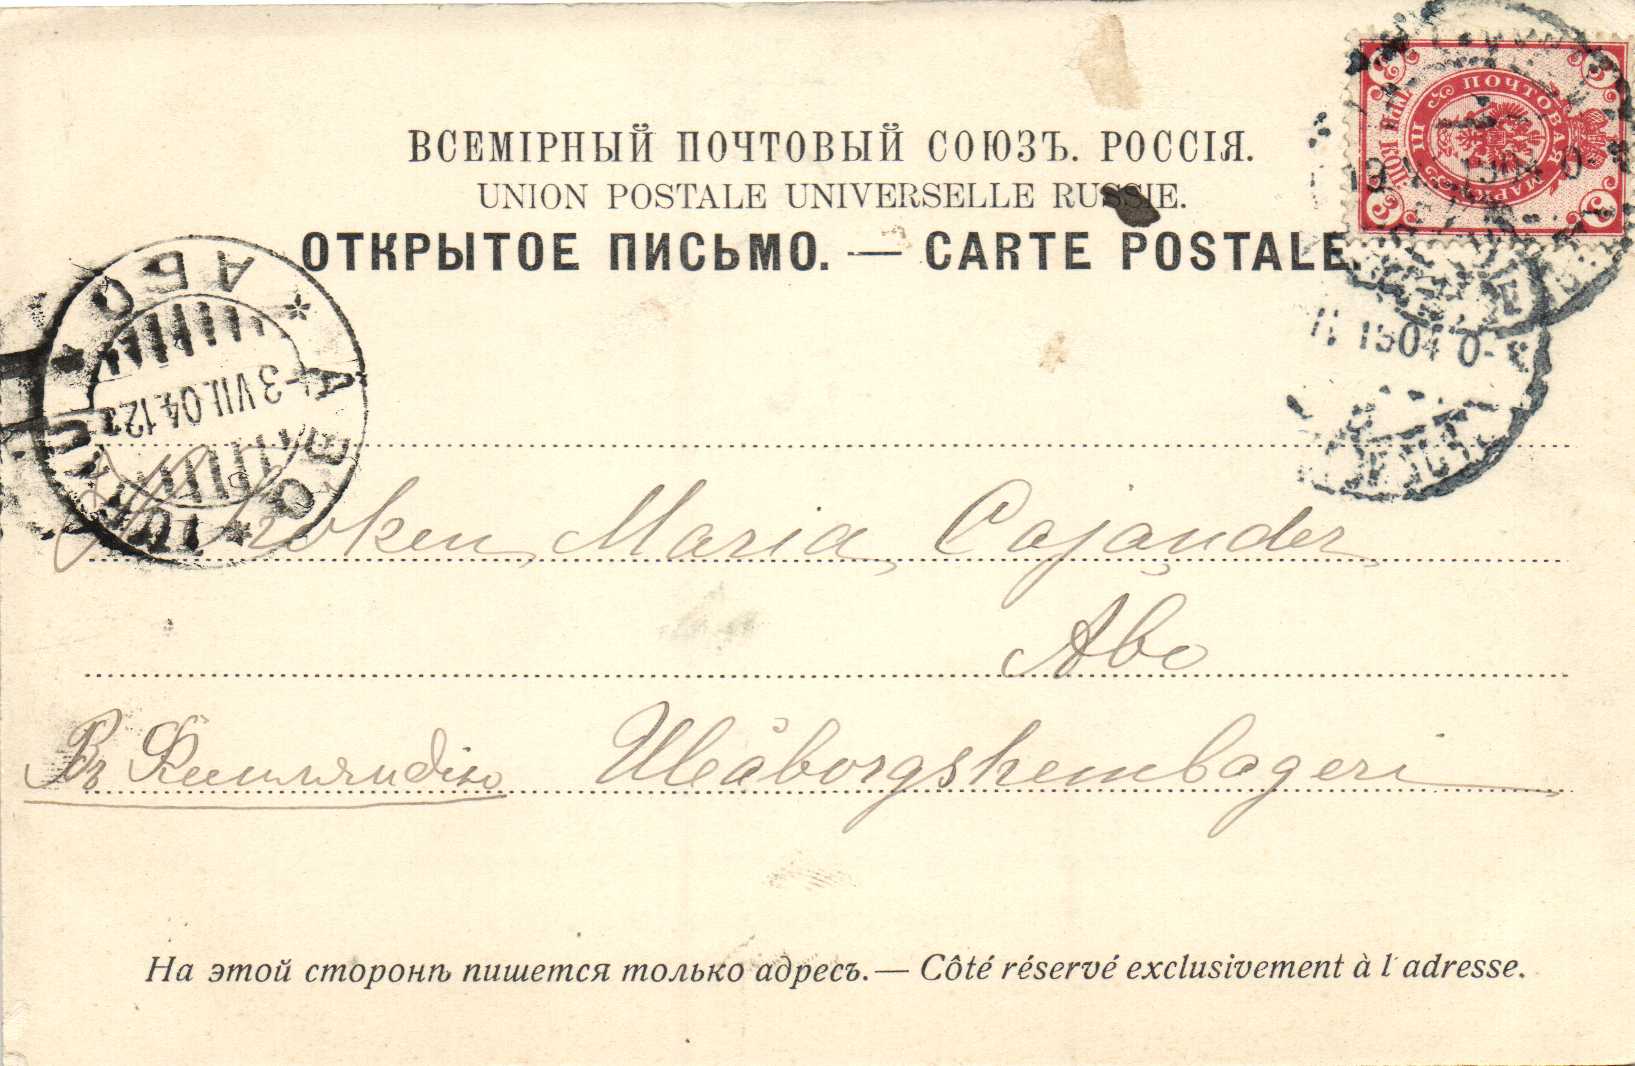 ВСЕМІРНЫЙ ПОЧТОВЫЙ СОЮЗЪ. РОССІЯ.
UNION POSTALE UNIVERSELLE RUSSIE.
ОТКРЫТОЕ ПИСЬМО. — CARTE POSTALE.
ПОЧТОВАЯ МАРКА
3 3 3 3
АБО
ABO
TURKU
-3 VII.04.12
1904
1904
Fröken Maria Cajander
Åbo
Uleåborgshembageri
Въ Финляндію
На этой сторонѣ пишется только адресъ.— Côté réservé exclusivement à l'adresse.